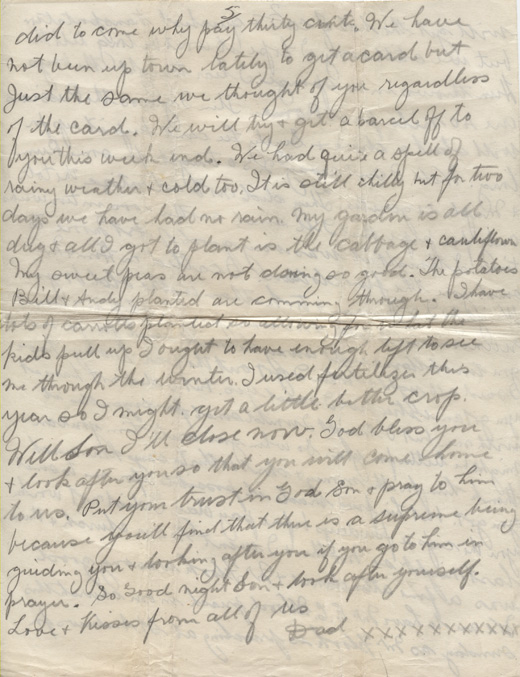 5
did to come why pay thirty cents. We have
not been up town lately to get a card but
Just the same we thought of you regardless
of the card. We will try + get a parcel off to
you this week end. We had quite a spell of
rainy weather + cold too. It is still chilly but for two
days we have had no rain. My garden is all
dug + all I got to plant is the cabbage + cauliflower
My sweet peas are not doing so good. The potatoes
Bill + Andy planted are comming through. I have
lots of carrots planted so allowing for what the
kids pull up I ought to have enough left to see
me through the winter. I used fertilizer this
year so I might get a little better crop.
Well Son I'll close now. God bless you
+ look after you so that you will come home
to us. Put your trust in God Son + pray to him
because you'll find that there is a supreme being
guiding you + looking after you if you go to him in
prayer. So Good night Son + look after yourself.
Love + Kisses from all of us
Dad xxxxxxxxxxx